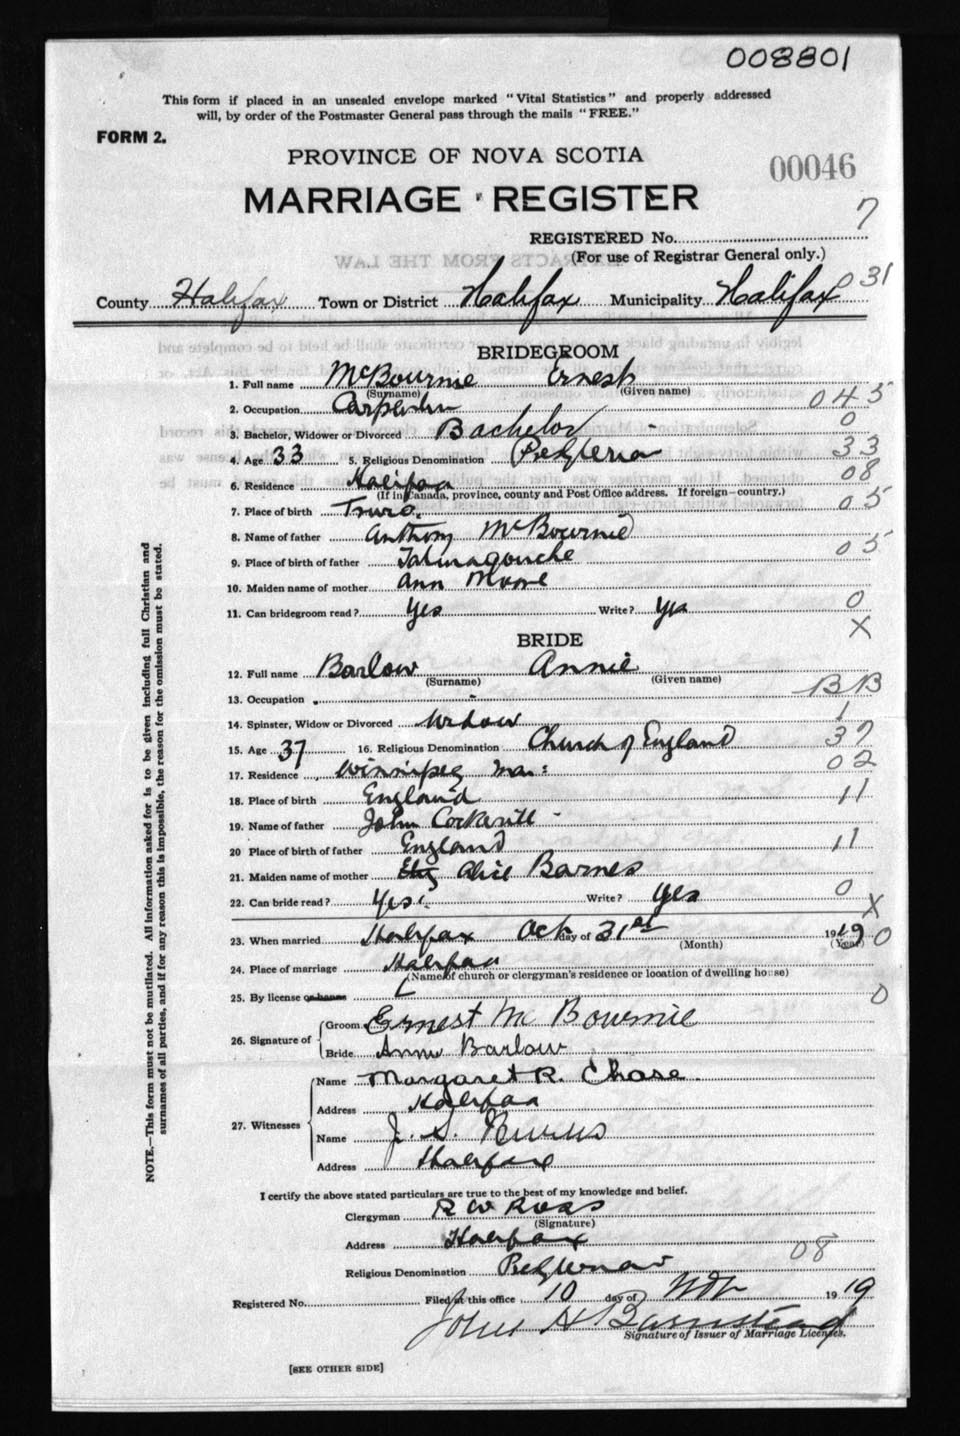 008801
This form if placed in an unsealed envelope marked "Vital Statistics" and properly addressed
will, by order of the Postmaster General pass through the mails "FREE."
FORM 2.
PROVINCE OF NOVA SCOTIA
00046
MARRIAGE REGISTER
7
REGISTERED No.
(For use of Registrar General only.)
031
County Halifax Town or District Halifax Municipality Halifax
BRIDEGROOM
1. Full name McBournie Ernest
(Surname) (Given name)
2. Occupation Carpenter 045
3. Bachelor, Widower or Divorced Bachelor 0
4. Age 33 5. Religious Denomination 33
6. Residence Halifax 08
(If in Canada, province, county and Post Office address. If foreign—country.)
7. Place of birth Truro. 05
8. Name of father Anthony McBournie
9. Place of birth of father Tatmagouche 05
10. Maiden name of mother Ann Moore
11. Can bridegroom read? Yes Write? Yes 0
X
BRIDE
12. Full name Barlow Annie
(Surname) (Given name)
13. Occupation - BB
14. Spinster, Widow or Divorced Widow 1
15. Age 37 16. Religious Denomination Church of England 37
17. Residence Winnipeg Man: 02
18. Place of birth England 11
19. Name of father John
20 Place of birth of father England 11
21. Maiden name of mother Alice Barnes
22. Can bride read? Yes. Write? Yes 0
X
23. When married Halifax Oct day of 31st 1919 0
(Month) (Year)
24. Place of marriage Halifax
(Name of church or clergyman's residence or location of dwelling house)
25. By license or banns 0
26. Signature of Groom Ernest McBournie
Bride Annie Barlow
27. Witnesses Name Margaret R. Chase.
Address Halifax
Name J. S.
Address Halifax
I certify the above stated particulars are true to the best of my knowledge and belief.
Clergyman R W Ross
(Signature)
Address Halifax
08
Religious Denomination
Registered No. Filed at this office 10 day of Nov 1919
John H Barnstead
Signature of Issuer of Marriage Licenses.
[SEE OTHER SIDE]
NOTE.—This form must not be mutilated. All information asked for is to be given including full Christian and
surnames of all parties, and if for any reason this is impossible, the reason for the omission must be stated.